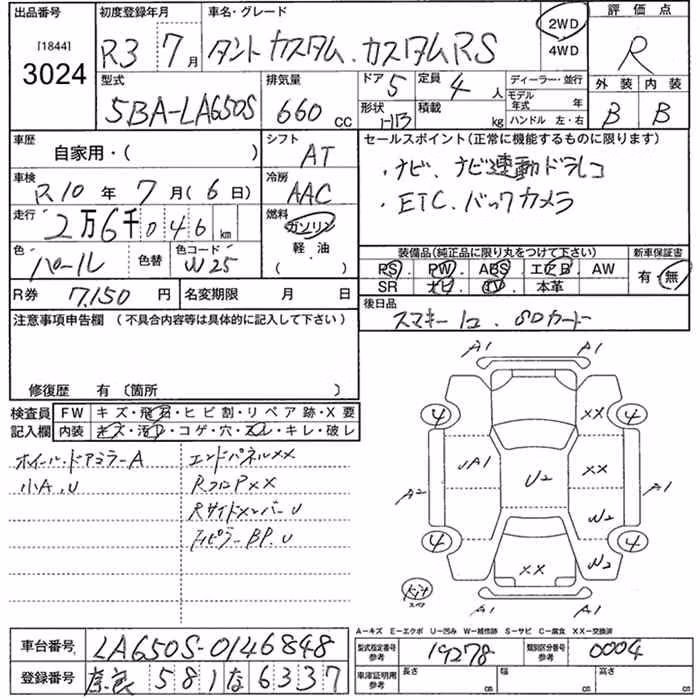 出品番号 初度登録年月 車名・グレード 評価点
[1844]
3024
R3 7月 タントカスタム.カスタムRS 2WD 4WD R
型式 排気量 ドア 5 定員 4人 ディーラー・並行 外装 内装
5BA-LA650S 660 CC 形状 積載 kg モデル年式 年 ハンドル 左・右 B B
車歴 シフト セールスポイント(正常に機能するものに限ります)
自家用・( ) AT ・ナビ、ナビ連動ドラレコ
車検 冷房 ・ETC.バックカメラ
R10年 7月(6日) AAC
走行 燃料
2万6千046km ガソリン
軽・油
( )
色 色替 色コード 装備品(純正品に限り丸をつけて下さい) 新車保証書
パール W25 PS. PW. ABS. エアB. AW 有・無
SR ナビ. TV. 本革
R券 7,150円 名変期限 月 日 後日品
スマキー1コ. SDカード
注意事項申告欄(不具合内容等は具体的に記入して下さい)
修復歴 有〔箇所 〕
検査員 FW キズ・飛石・ヒビ割・リペア跡・X要
記入欄 内装 キズ・汚レ・コゲ・穴・スレ・キレ・破レ
ホイール・ドアミラーA エンドパネルXX
小A,U RフロアPXX
RサイドメンバーU
BP.U
A1 A1
4 XX 4
UA1 XX A1
A2 U2
W2
4 W2 4
XX
キット
スペア
A1 A1
A−キズ E−エクボ U−凹み W−補修跡 S−サビ C−腐食 XX−交換済
車台番号 LA650S-0146848 型式指定番号 参考 19278 類別区分番号 参考 0004
登録番号 奈良 581 な 6337 車庫証明用 参考 長さ cm 幅 cm 高さ cm